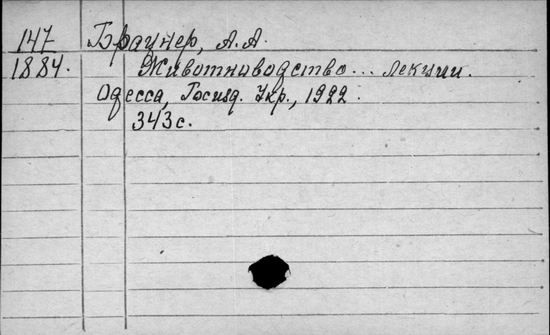 147 Браунер, А.А.
1884. Животноводство... лекции.
Одесса, Госизд. Укр., 1922.
343с.